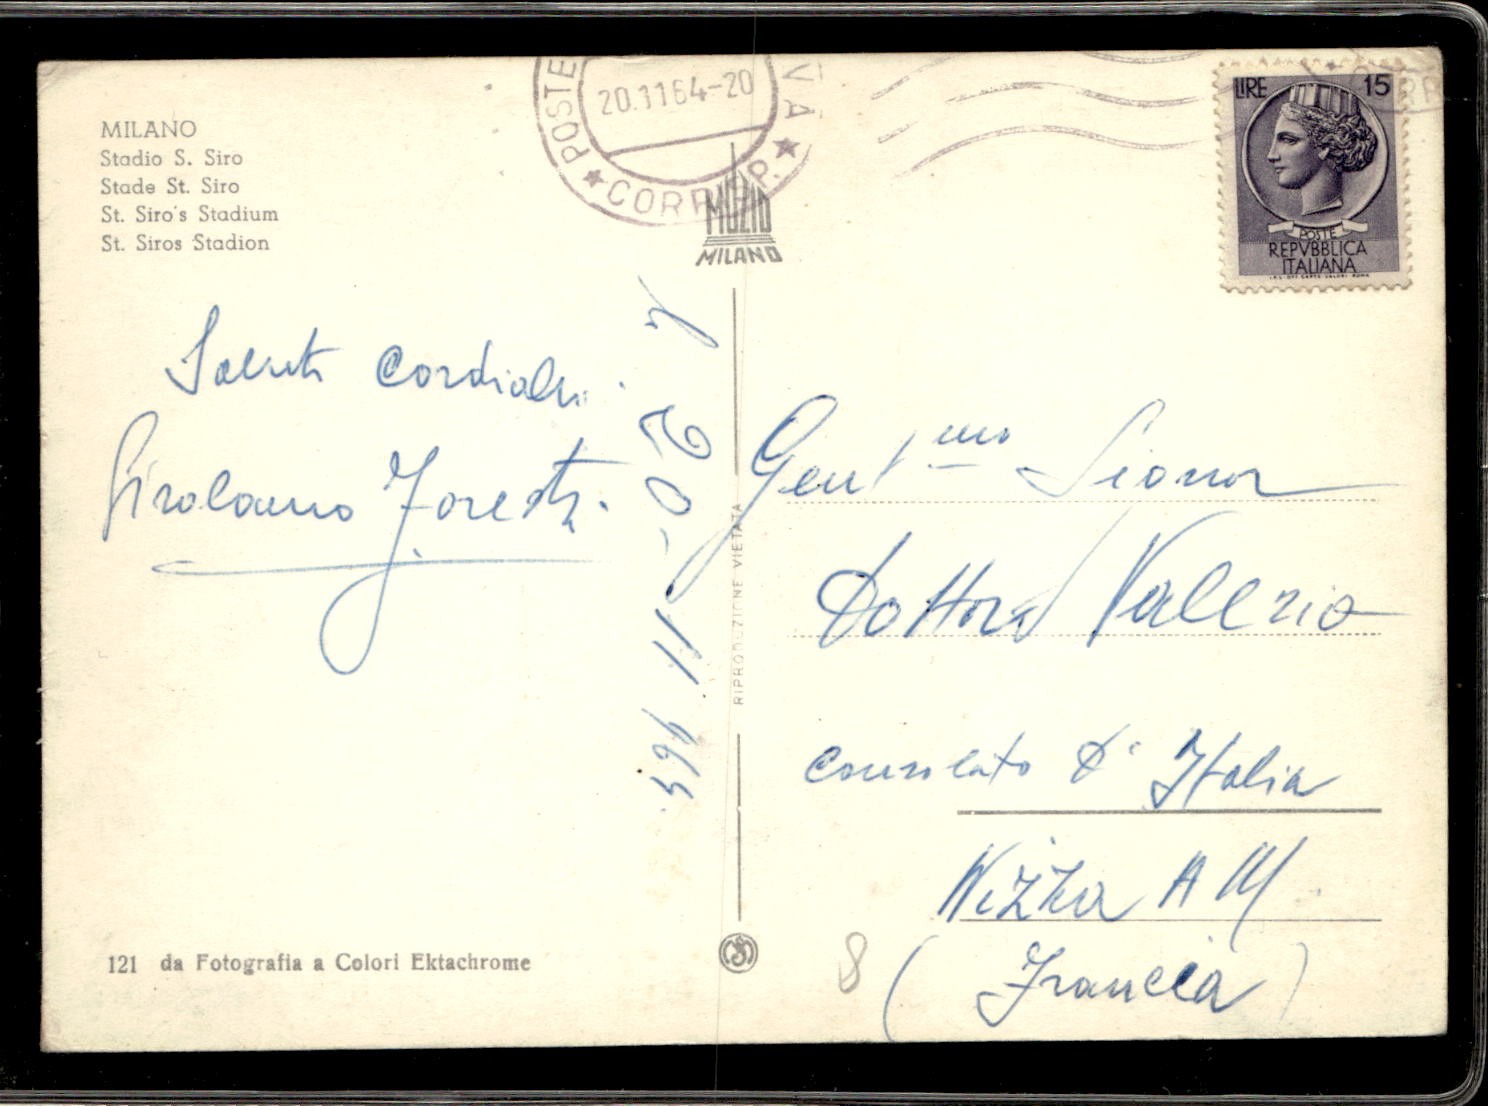 MILANO
Stadio S. Siro
Stade St. Siro
St. Siro's Stadium
St. Siros Stadion
POSTE
VA
20.1164-20
CORRISP.
MUZIO
MILANO
LIRE 15
POSTE
REPVBBLICA
ITALIANA
Saluti cordiali
Girolamo Foresti
li 20-11 964
RIPRODUZIONE VIETATA
Gent mo Signor
Dottore Valerio
Consolato d'Italia
Nizza A M
(Francia)
8
121 da Fotografia a Colori Ektachrome